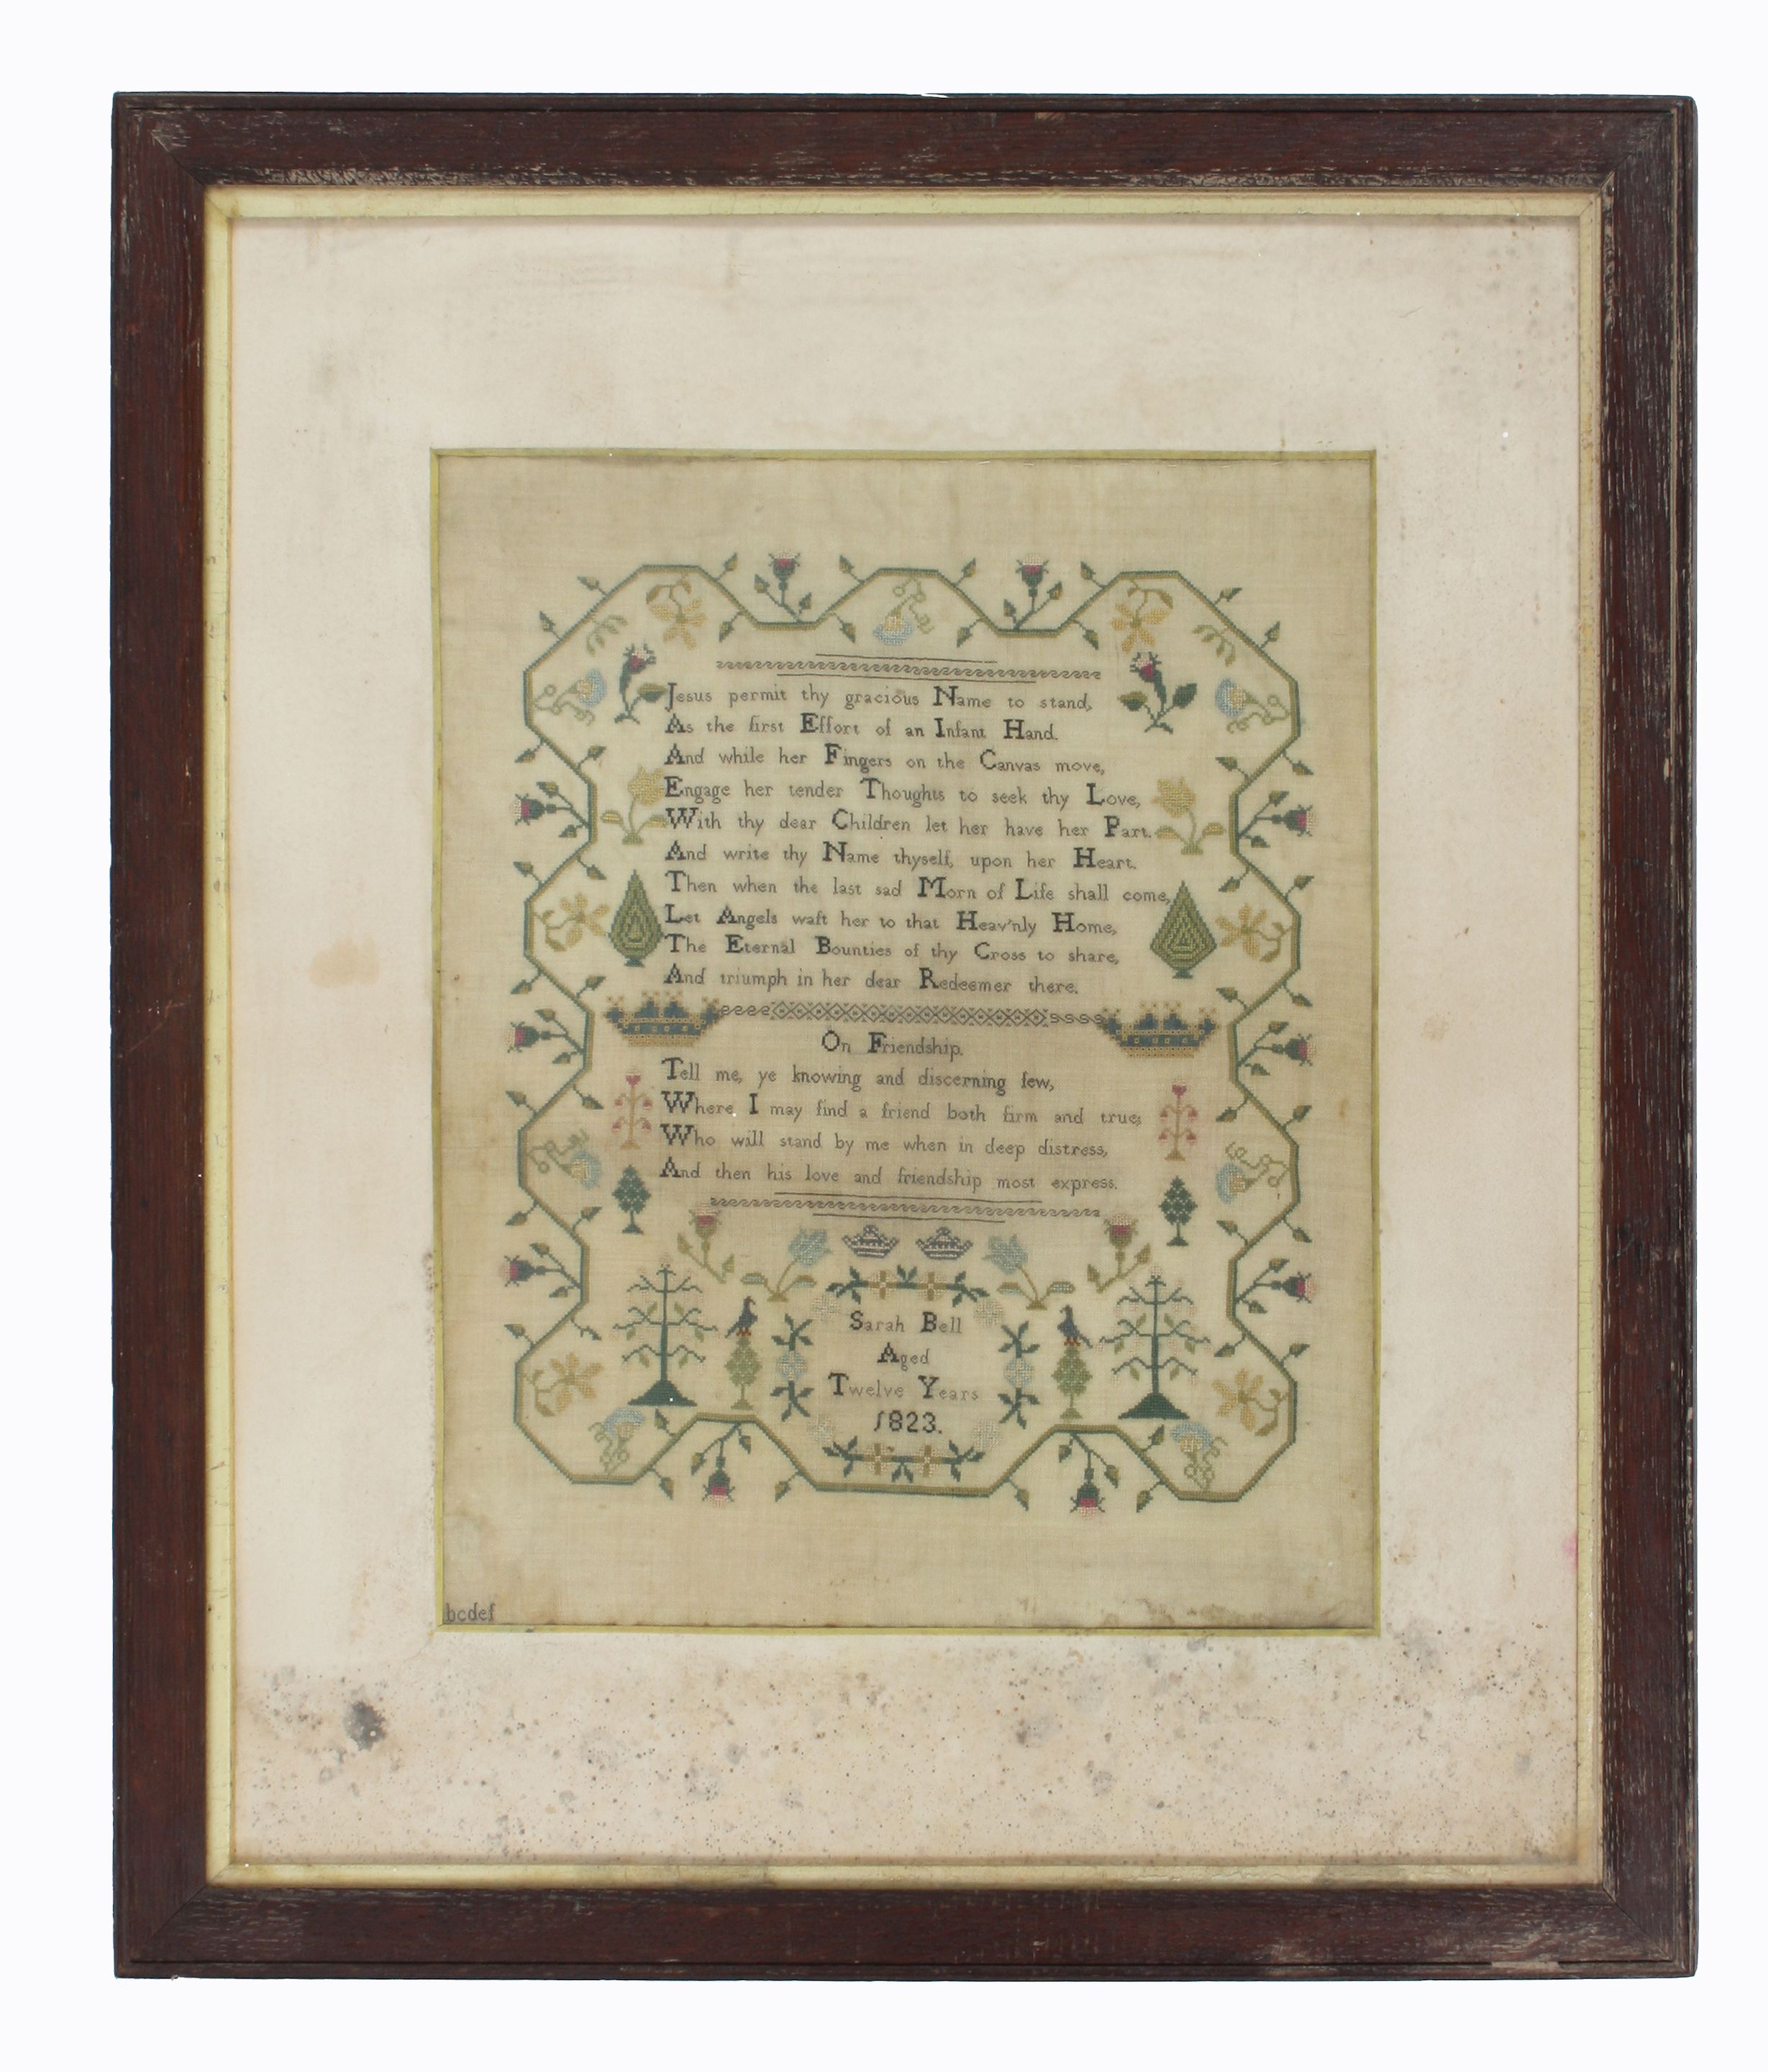 Jesus permit thy gracious Name to stand,
As the first Effort of an Infant Hand.
And while her Fingers on the Canvas move,
Engage her tender Thoughts to seek thy Love,
With thy dear Children let her have her Part.
And write thy Name thyself, upon her Heart.
Then when the last sad Morn of Life shall come,
Let Angels waft her to that Heav'nly Home,
The Eternal Bounties of thy Cross to share,
And triumph in her dear Redeemer there.
On Friendship.
Tell me, ye knowing and discerning few,
Where I may find a friend both firm and true;
Who will stand by me when in deep distress,
And then his love and friendship most express.
Sarah Bell
Aged
Twelve Years
1823.
bcdef